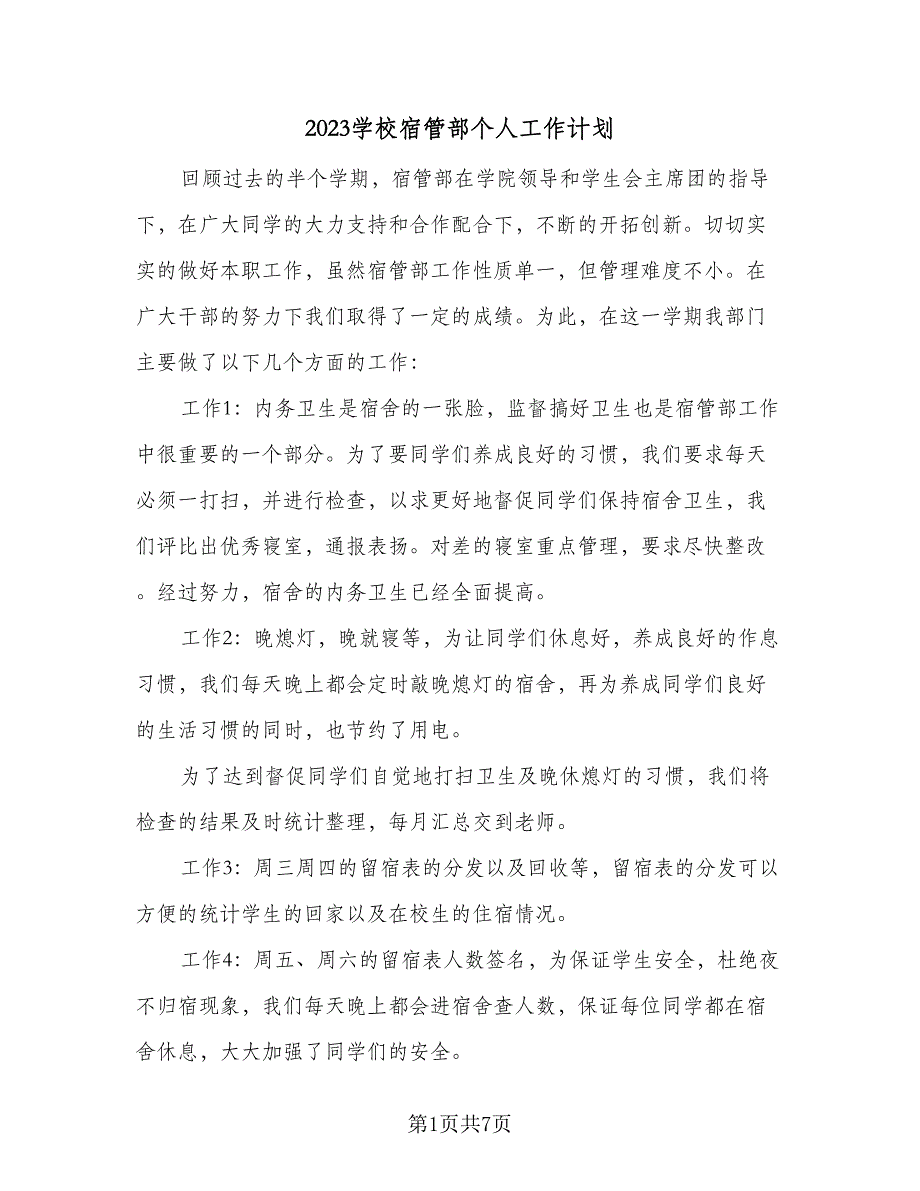 2023学校宿管部个人工作计划
回顾过去的半个学期，宿管部在学院领导和学生会主席团的指导
下，在广大同学的大力支持和合作配合下，不断的开拓创新。切切实
实的做好本职工作，虽然宿管部工作性质单一，但管理难度不小。在
广大干部的努力下我们取得了一定的成绩。为此，在这一学期我部门
主要做了以下几个方面的工作：
工作1：内务卫生是宿舍的一张脸，监督搞好卫生也是宿管部工作
中很重要的一个部分。为了要同学们养成良好的习惯，我们要求每天
必须一打扫，并进行检查，以求更好地督促同学们保持宿舍卫生，我
们评比出优秀寝室，通报表扬。对差的寝室重点管理，要求尽快整改
。经过努力，宿舍的内务卫生已经全面提高。
工作2：晚熄灯，晚就寝等，为让同学们休息好，养成良好的作息
习惯，我们每天晚上都会定时敲晚熄灯的宿舍，再为养成同学们良好
的生活习惯的同时，也节约了用电。
为了达到督促同学们自觉地打扫卫生及晚休熄灯的习惯，我们将
检查的结果及时统计整理，每月汇总交到老师。
工作3：周三周四的留宿表的分发以及回收等，留宿表的分发可以
方便的统计学生的回家以及在校生的住宿情况。
工作4：周五、周六的留宿表人数签名，为保证学生安全，杜绝夜
不归宿现象，我们每天晚上都会进宿舍查人数，保证每位同学都在宿
舍休息，大大加强了同学们的安全。
第1页共7页